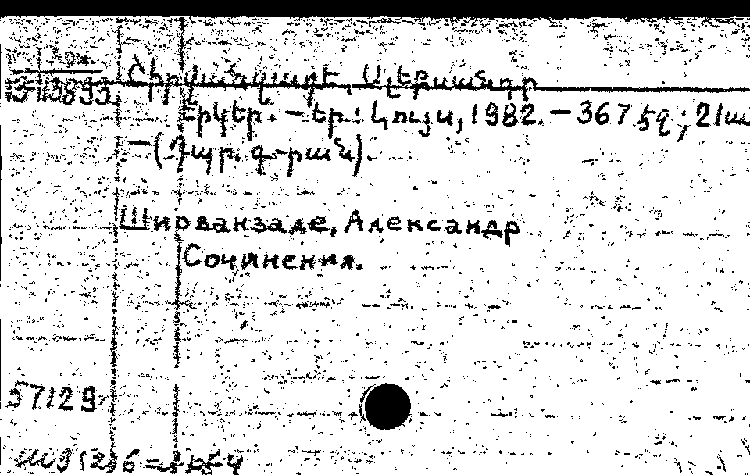 Շիրվանզադե, Ալեքսանդր
Երկեր. — Եր.: Լույս, 1982. — 367 էջ; 21սմ
— (Դպր. գ-րան).
Ширванзаде, Александр
Сочинения.
57129